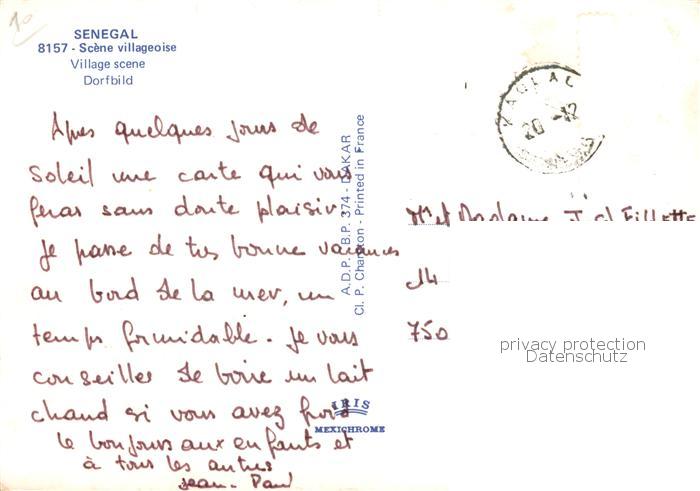 SENEGAL
8157 - Scène villageoise
Village scene
Dorfbild
Apres quelques jours de
soleil une carte qui vous
feras sans doute plaisir
Je passe de tres bonne vacances
au bord de la mer, un
temps formidable. Je vous
conseilles de boire un lait
chaud si vous avez froid
le bonjours aux enfants et
à tous les autres
Jean-Paul
A.D.P. B.P. 374 - DAKAR
Cl. P. Chareton - Printed in France
IRIS
MEXICHROME
KAOLACK
20 -12
Mr et Madame J
14
750
privacy protection
Datenschutz